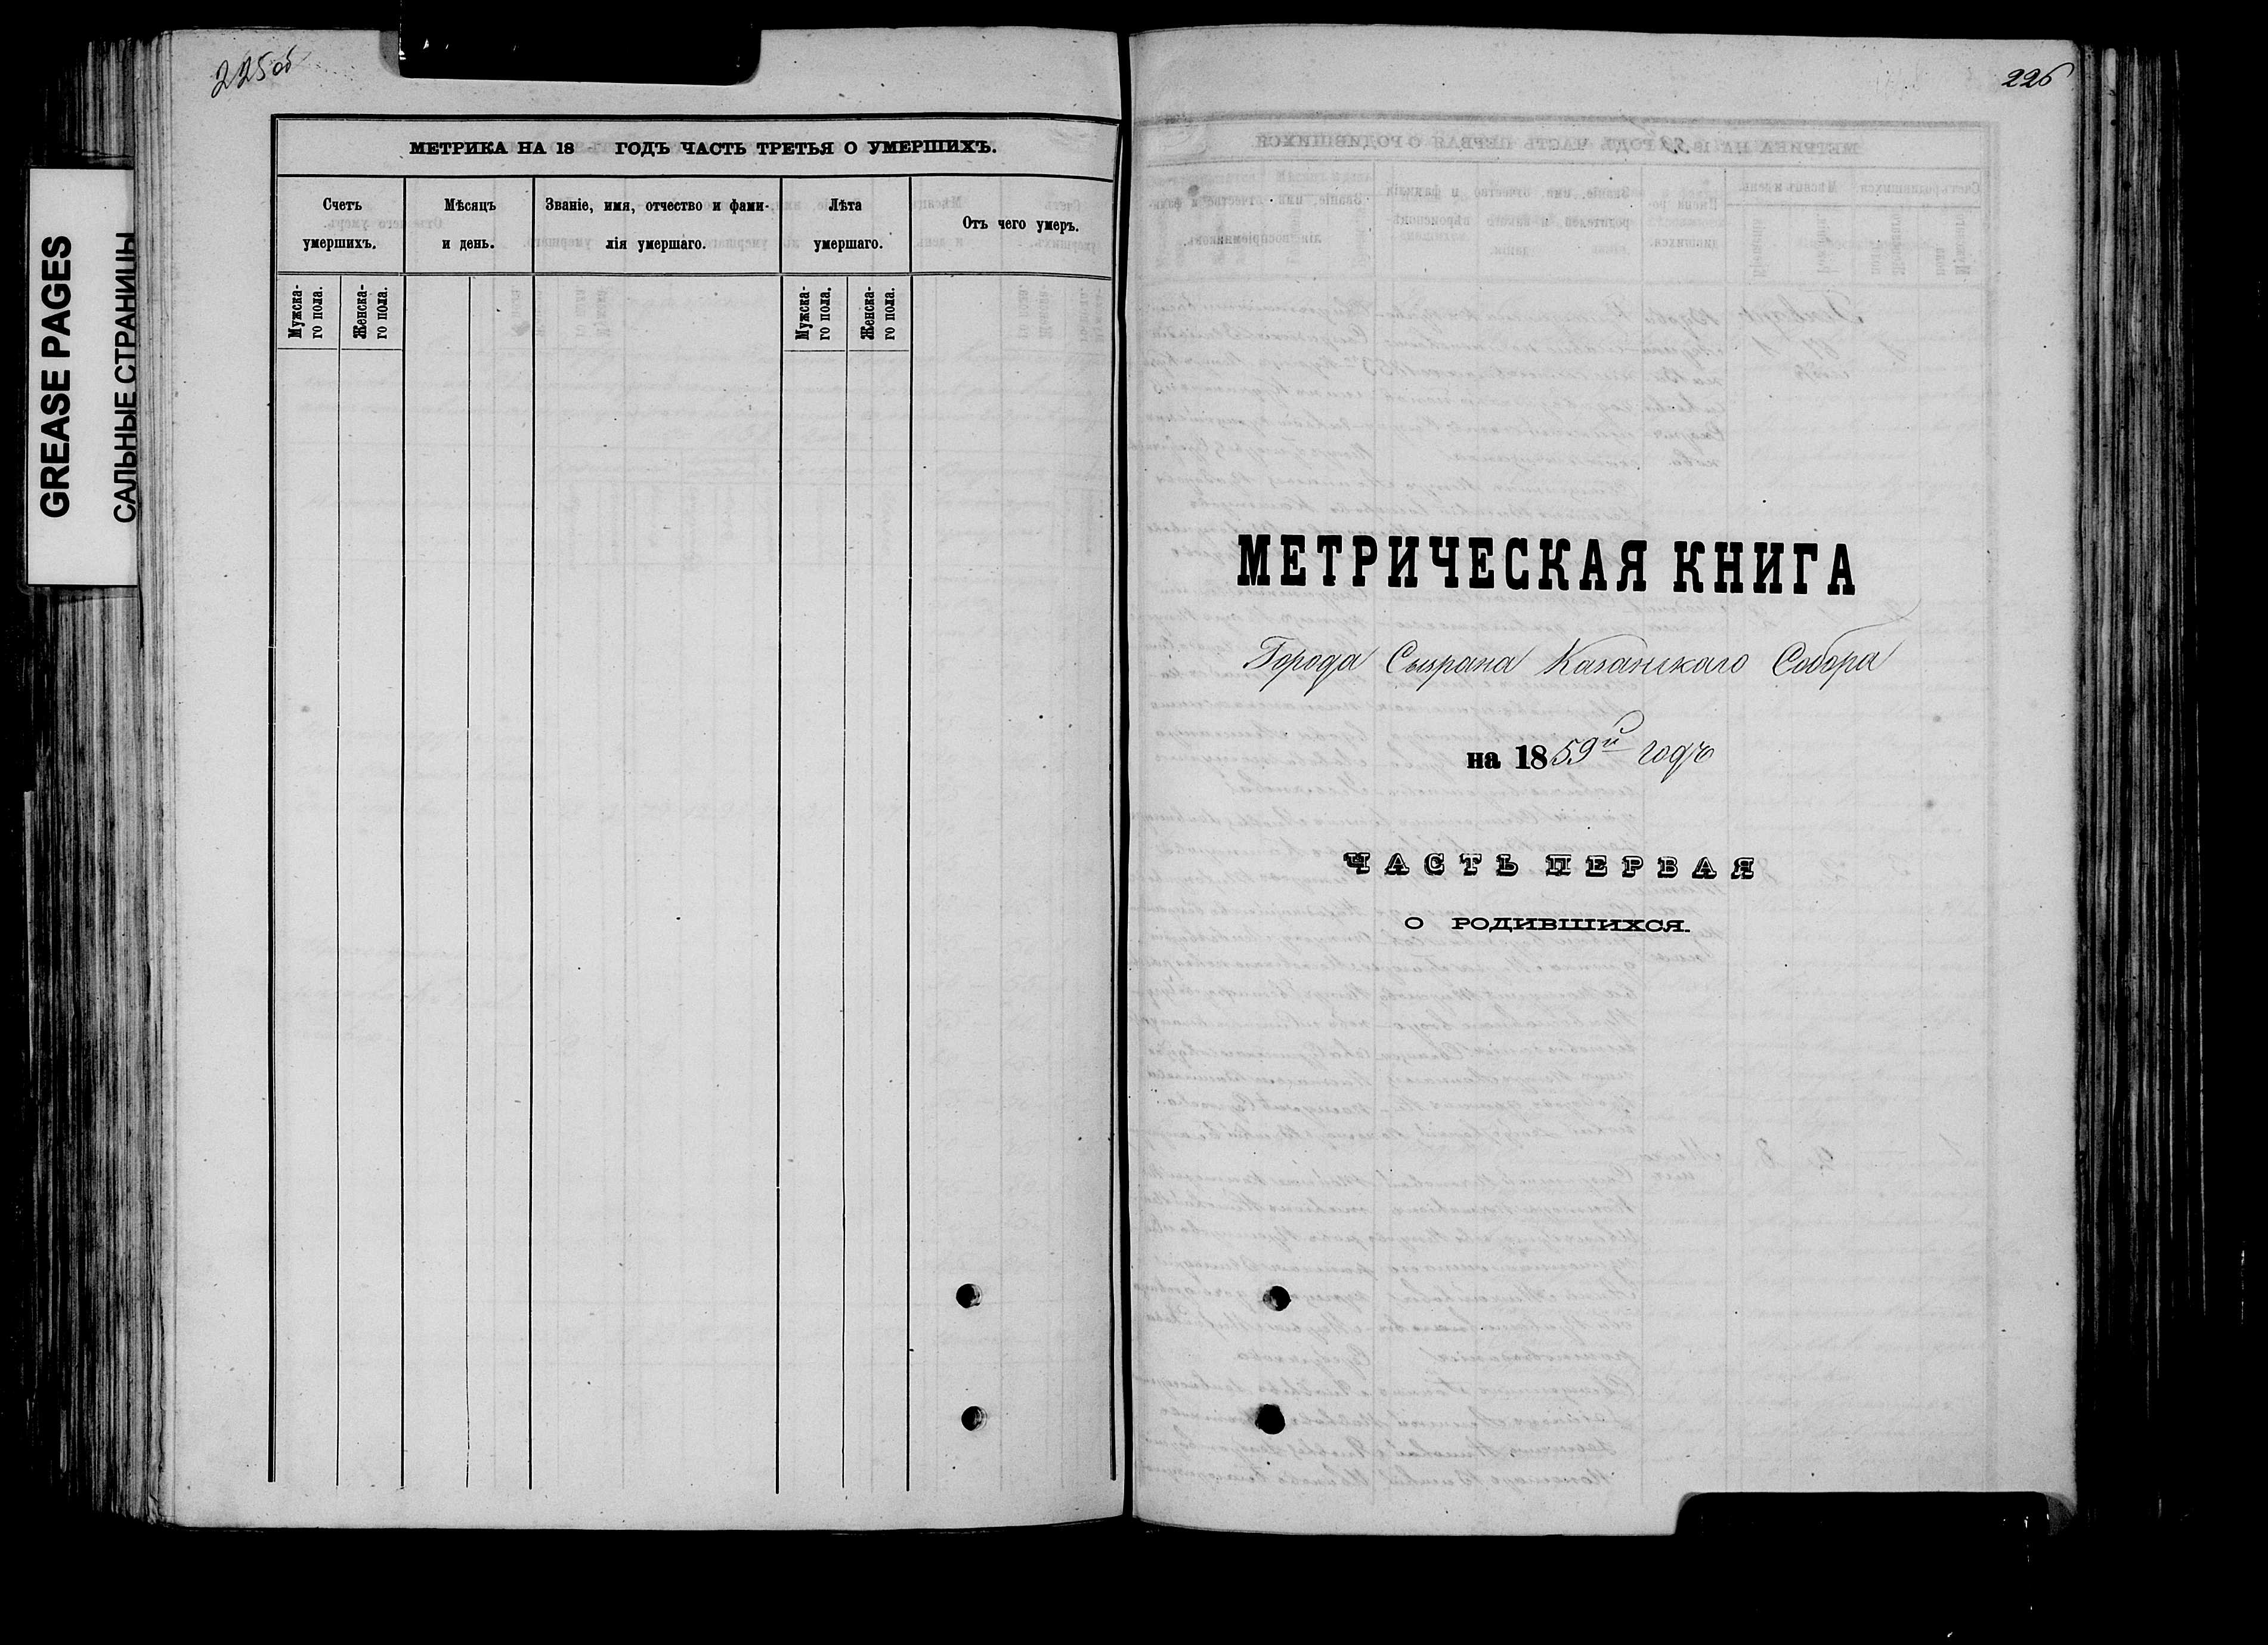 GREASE PAGES
САЛЬНЫЕ СТРАНИЦЫ
225об
МЕТРИКА НА 18 ГОДЪ ЧАСТЬ ТРЕТЬЯ О УМЕРШИХЪ.
Счетъ
умершихъ.
Мѣсяцъ
и день.
Званіе, имя, отчество и фами-
лія умершаго.
Лѣта
умершаго.
Отъ чего умеръ.
Мужска-
го пола.
Женска-
го пола.
Мужска-
го пола.
Женска-
го пола.
226
МЕТРИЧЕСКАЯ КНИГА
Города Сызрана Казанскаго Собора
на 1859й годъ
ЧАСТЬ ПЕРВАЯ
О РОДИВШИХСЯ.